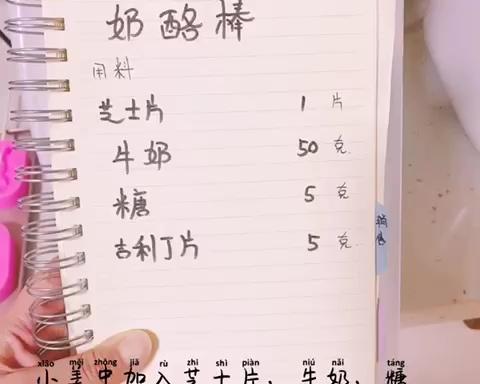 奶酪棒
用料
芝士片 1 片
牛奶 50 克
糖 5 克
吉利丁片 5 克
xiǎo měi zhōng jiā rù zhī shì piàn niú nǎi táng
小美中加入芝士片，牛奶，糖